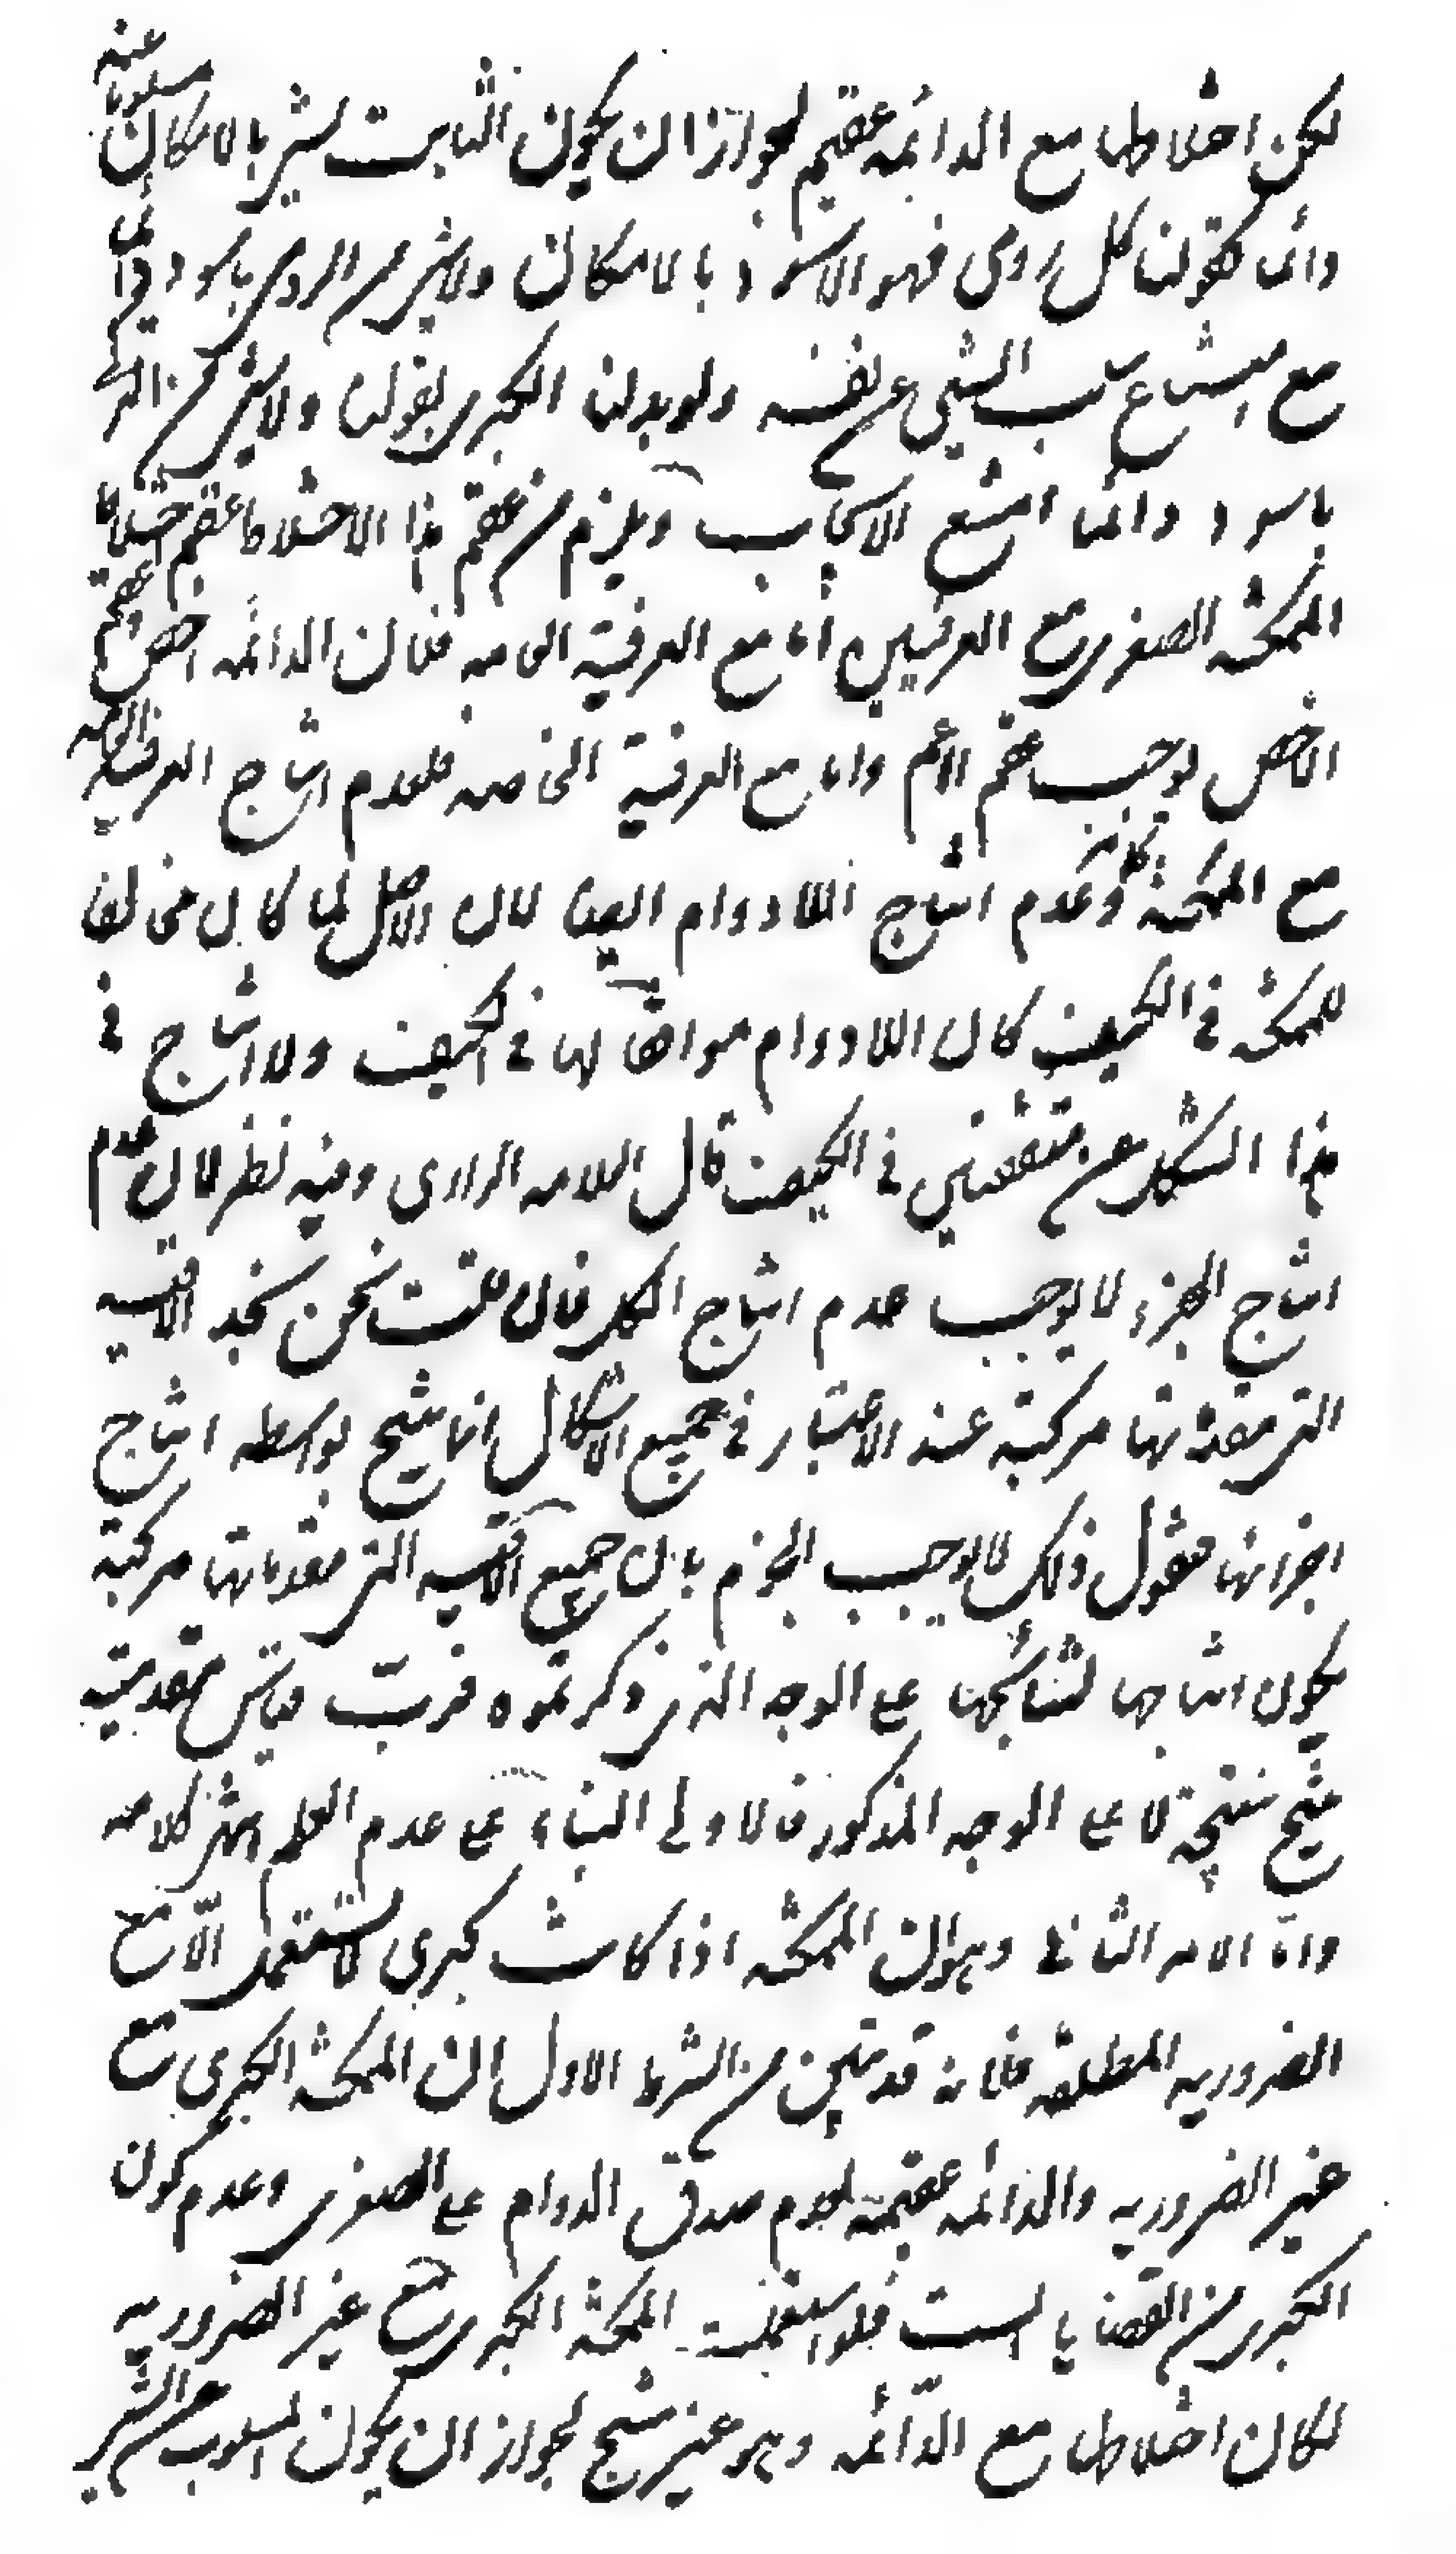 لكن اختلاطها مع الدائمة عقيم لجواز ان يكون الثابت لشئ بالامكان مسلوبا عنه
دائما كقولنا كل رومى فهو الاسود بالامكان ولا شئ من الرومى باسود دائما
مع امتناع سلب الشئ عن نفسه ولو بدلنا الكبرى بقولنا ولا شئ من التركى
باسود دائما امتنع الايجاب ويلزم من عقم هذا الاختلاط عقم اختلاط
الممكنة الصغرى مع العرفيتين اما مع العرفية العامة فلان الدائمة اخص وعقم
الاخص يوجب عقم الاعم واما مع العرفية الخاصة فلعدم انتاج العرفية العامة
مع الممكنة كما مر وعدم انتاج اللادوام ايضا لان الاصل لما كان مخالفا
للممكنة فى الكيف كان اللادوام موافقا لها فى الكيف ولا انتاج فى
هذا الشكل عن متفقتين فى الكيف قال العلامة الرازى وفيه نظر لان عدم
انتاج الجزء لا يوجب عدم انتاج الكل فان قلت نحن نجد الاقيسة
التى مقدماتها مركبة عند الاعتبار فى جميع الاشكال انما ينتج بواسطة انتاج
اجزائها فنقول ذلك لا يوجب الجزم بان جميع الاقيسة التى مقدماتها مركبة
يكون انتاجها لنتائجها على الوجه الذى ذكرتموه فرب قياس بمقدمتيه
ينتج نتيجة لا على الوجه المذكور فالاولى البناء على عدم العلم انتهى كلامه
واما الامر الثانى وهو ان الممكنة اذا كانت كبرى لا تستعمل الا مع
الضرورية المطلقة فلانه قد تبين من الشرط الاول ان الممكنة الكبرى مع
غير الضرورية والدائمة عقيمة لعدم صدق الدوام على الصغرى وعدم كون
الكبرى من القضايا الست فلو استعملت الممكنة الكبرى مع غير الضرورية
لكان اختلاطها مع الدائمة وهو غير منتج لجواز ان يكون المسلوب عن الشئ